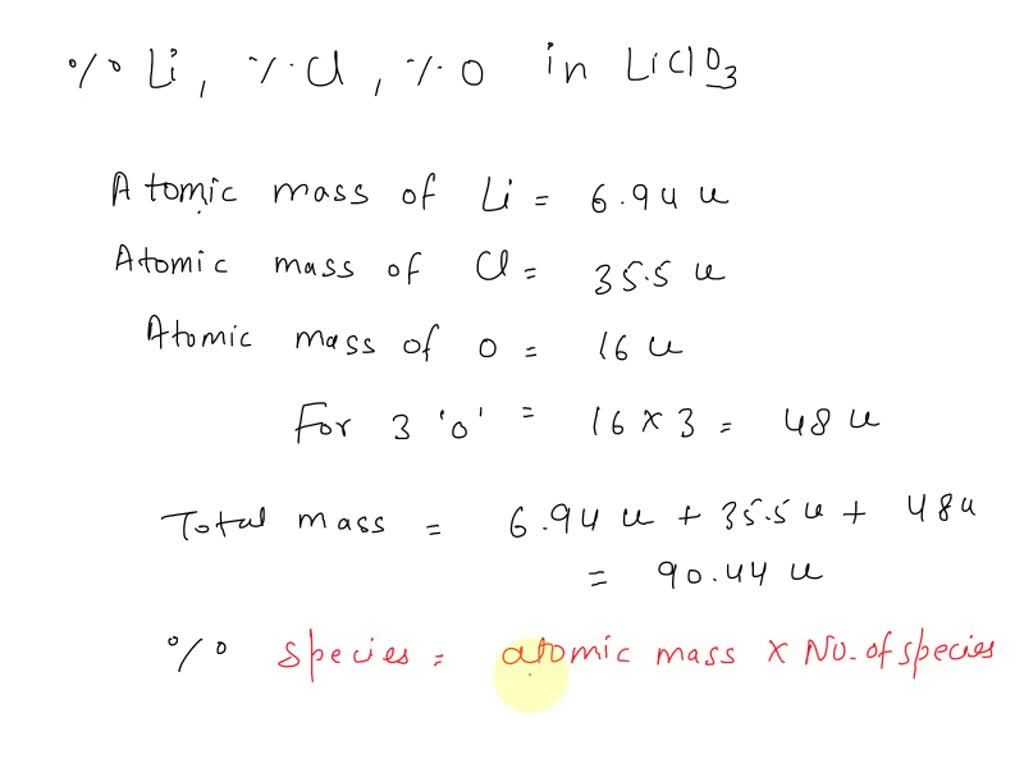 % Li, % Cl, % O in LiClO3
Atomic mass of Li = 6.94 u
Atomic mass of Cl = 35.5 u
Atomic mass of O = 16 u
For 3 'O' = 16 × 3 = 48 u
Total mass = 6.94 u + 35.5 u + 48 u
= 90.44 u
% species = atomic mass × No. of species